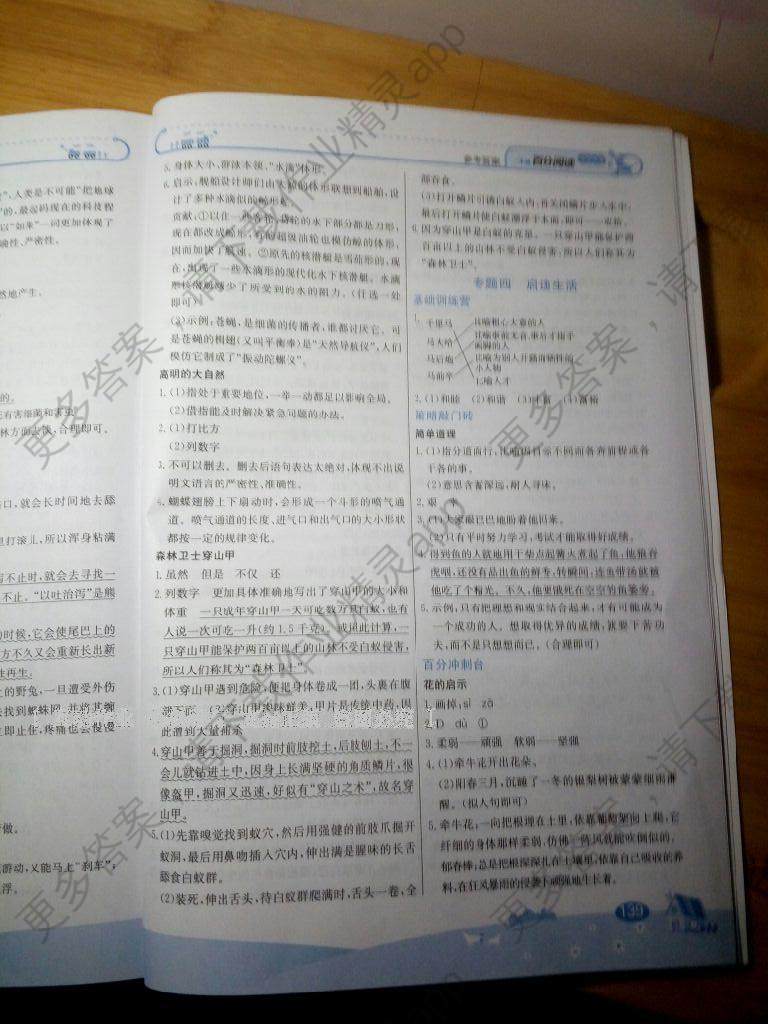 ”,人类是不可能“把地球
”的,最起码现在的科技程
以“如果”一词更加体现了
确性、严密性。
然地产生。
的。
死有害细菌和害虫。
林方面去谈,合理即可。
口,就会长时间地去舔
里打滚儿,所以浑身粘满
泻不止时,就会去寻找一
不止。“以吐治泻”是熊
的时候,它会使尾巴上的
方不久又会重新长出新
再生。
上的野兔,一旦遭受外伤
去找到蜘蛛网,并将其
立即止住,疼痛也会慢慢
做。
游动,又能马上“刹车”;
浮。
参考答案
百分阅读
5.身体大小、游泳本领、“水滴”体形。
6.启示,舰船设计师们由
的体形联想到船舶,设
计了多种水滴似的
贡献,①以往
货轮的水下部分都是刀形,
现在都改成
超级油轮也模仿鲸的体形,
因而加快了航速。②原先的核潜艇是雪茄形的,现
在,出现了一些水滴形的现代化水下核潜艇。水滴
少了所受到的水的阻力。(任选一处
即可)
(2)示例:苍蝇,是细菌的传播者,谁都讨厌它。可
是苍蝇的楫翅(又叫平衡奉)是“天然导航仪”,人们
模仿它制成了“振动陀螺义”。
高明的大自然
1.(1)指处于重要地位,一举一动都足以影响全局。
(2)借指能及时解决紧急问题的办法。
2.(1)打比方
(2)列数字
3.不可以删去。删去后语句表达太绝对,体现不出说
明文语言的严密性、准确性。
4.蝴蝶翅膀上下扇动时,会形成一个斗形的喷气通
道、喷气通道的长度、进气口和出气口的大小形状
都按一定的规律变化。
森林卫士穿山甲
1.虽然 但是 不仅 还
2.列数字 更加具体准确地写出了穿山甲的大小和
体重 一只成年穿山甲一天可吃数万只白蚁,也有
人说一次可吃一升(约1.5千克)。或以此计算,一
只穿山甲能保护两百亩以上的山林不受白蚁侵害,
所以人们称其为“森林卫士”。
3.(1)穿山甲遇到危险,便把身体卷成一团,头裹在腹
滚下而 (2)穿山甲肉味鲜美,甲片是传统中药,因
此遭到大量捕杀
4.穿山甲善于掘洞,掘洞时前肢挖土,后肢刨土,不一
会儿就钻进土中,因身上长满坚硬的角质鳞片,很
像盔甲,掘洞又迅速,好似有“穿山之术”,故名穿
山甲。
5.(1)先靠嗅觉找到蚁穴,然后用强健的前肢爪掘开
蚁洞,最后用鼻吻插入穴内,伸出满是腥味的长舌
舔食白蚁群。
(2)装死,伸出舌头,待白蚁群爬满时,舌头一卷,全
部吞食。
(3)打开鳞片引诱白蚁入内,再关闭鳞片步入水中,
最后打开鳞片使白蚁漂浮于水面,即可
6.因为穿山甲是白蚁的克星。一只穿山甲能保护两
百亩以上的山林不受白蚁侵害,所以人们称其为
“森林卫士”。
专题四 启迪生活
基础训练营
1.
千里马 比喻粗心大意的人
马大哈
马后炮
马前卒
比喻人才
2.(1)和睦 (2)和谐
策略敲门砖
简单道理
1.(1)指分道而行,比喻因目标不同而各奔前程或各
干各的事。
(2)意思含蓄深远,耐人寻味。
3.(1)人家眼巴巴地盼着他回来。
(2)只有平时努力学习,考试才能取得好成绩。
4.得到鱼的人就地用干柴点起篝火煮起了鱼,他狼吞
虎咽,还没有品出鱼的鲜香,转瞬间,连鱼带汤就被
他吃了个精光。不久,他更饿死在空空的鱼篓旁。
5.示例,只有把理想和现实结合起来,才有可能成为
一个成功的人。想取得优异的成绩,就要下苦功
夫,而不是只想想而已。(合理即可)
百分冲刺台
花的启示
1.画掉:sì zā
2.① dù ①
3.柔弱——顽强 软弱——坚强
4.(1)牵牛花开出花朵。
(2)阳春三月,沉睡了一冬的银梨树被蒙蒙细雨淋
醒。(拟人句即可)
5.牵牛花,一向把根埋在土里,依靠
向上爬,它
纤细的身体那样柔弱,仿佛一阵风就能吹倒似的。
郁春棒,总是把根深深扎在土壤里,依靠自己吸收的养
料,在狂风暴雨的侵袭下顽强地生长着。
139
更多答案,请下载作业精灵app